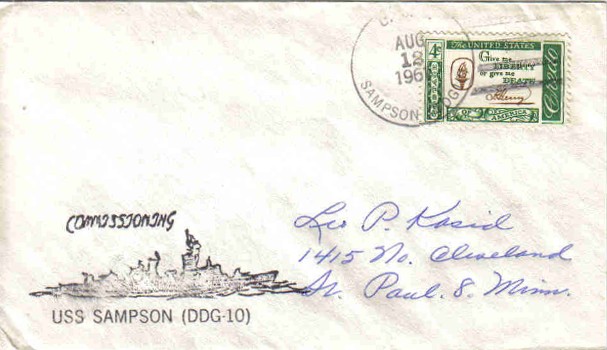 AUG
12
196
SAMPSON (DDG
4¢
The UNITED STATES
Give me
LIBERTY
or give me
DEATH
P Henry
Credo
OF
AMERICA
COMMISSIONING
USS SAMPSON (DDG-10)
Leo P. Kasid
1415 No. Cleveland
St. Paul. 8. Minn.